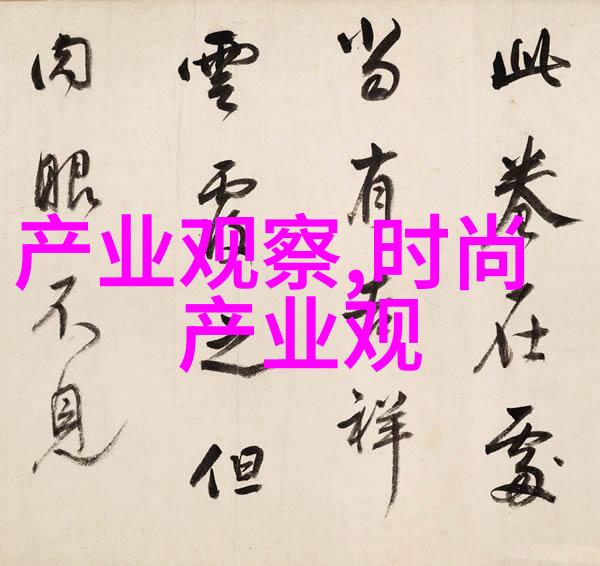 产业观察,时尚
产业观
此卷在處
当有吉祥
雲覆之但
肉眼不見